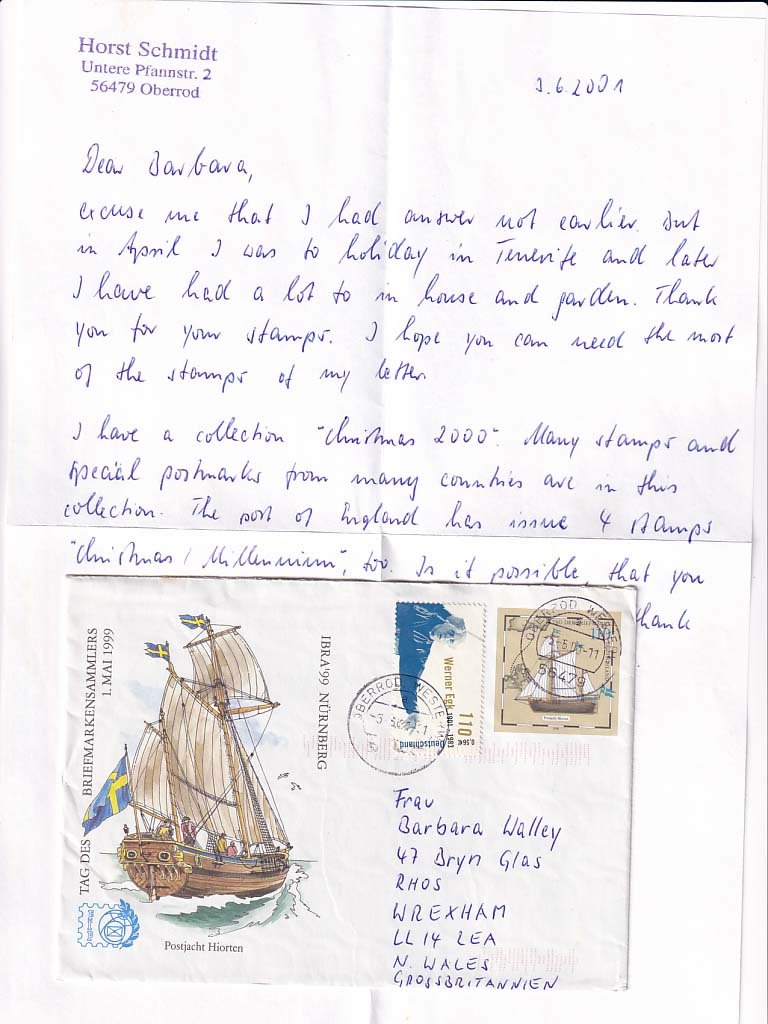 Horst Schmidt
Untere Pfannstr. 2
56479 Oberrod
3.6.2001
Dear Barbara,
excuse me that I had answer not earlier. But
in April I was to holiday in Tenerife and later
I have had a lot to in house and garden. Thank
you for your stamps. I hope you can need the most
of the stamps of my letter.
I have a collection "Christmas 2000". Many stamps and
special postmarks from many countries are in this
collection. The post of England has issue 4 stamps
"Christmas / Millennium", too. Is it possible, that you
thank
TAG DES BRIEFMARKENSAMMLERS
1. MAI 1999
IBRA'99 NÜRNBERG
Postjacht Hiorten
Werner Egk
1901-1983
110
0,56€
Deutschland
OBERROD WESTERW
OBERROD WESTERW
56479
110
Postjacht Hiorten
Frau
Barbara Walley
47 Bryn Glas
RHOS
WREXHAM
LL14 2EA
N. WALES
GROSSBRITANNIEN